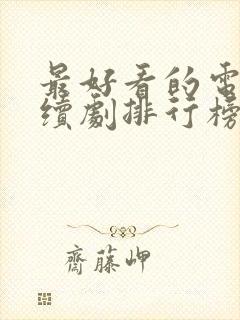 最好看的電
續劇排行榜
齊藤岬